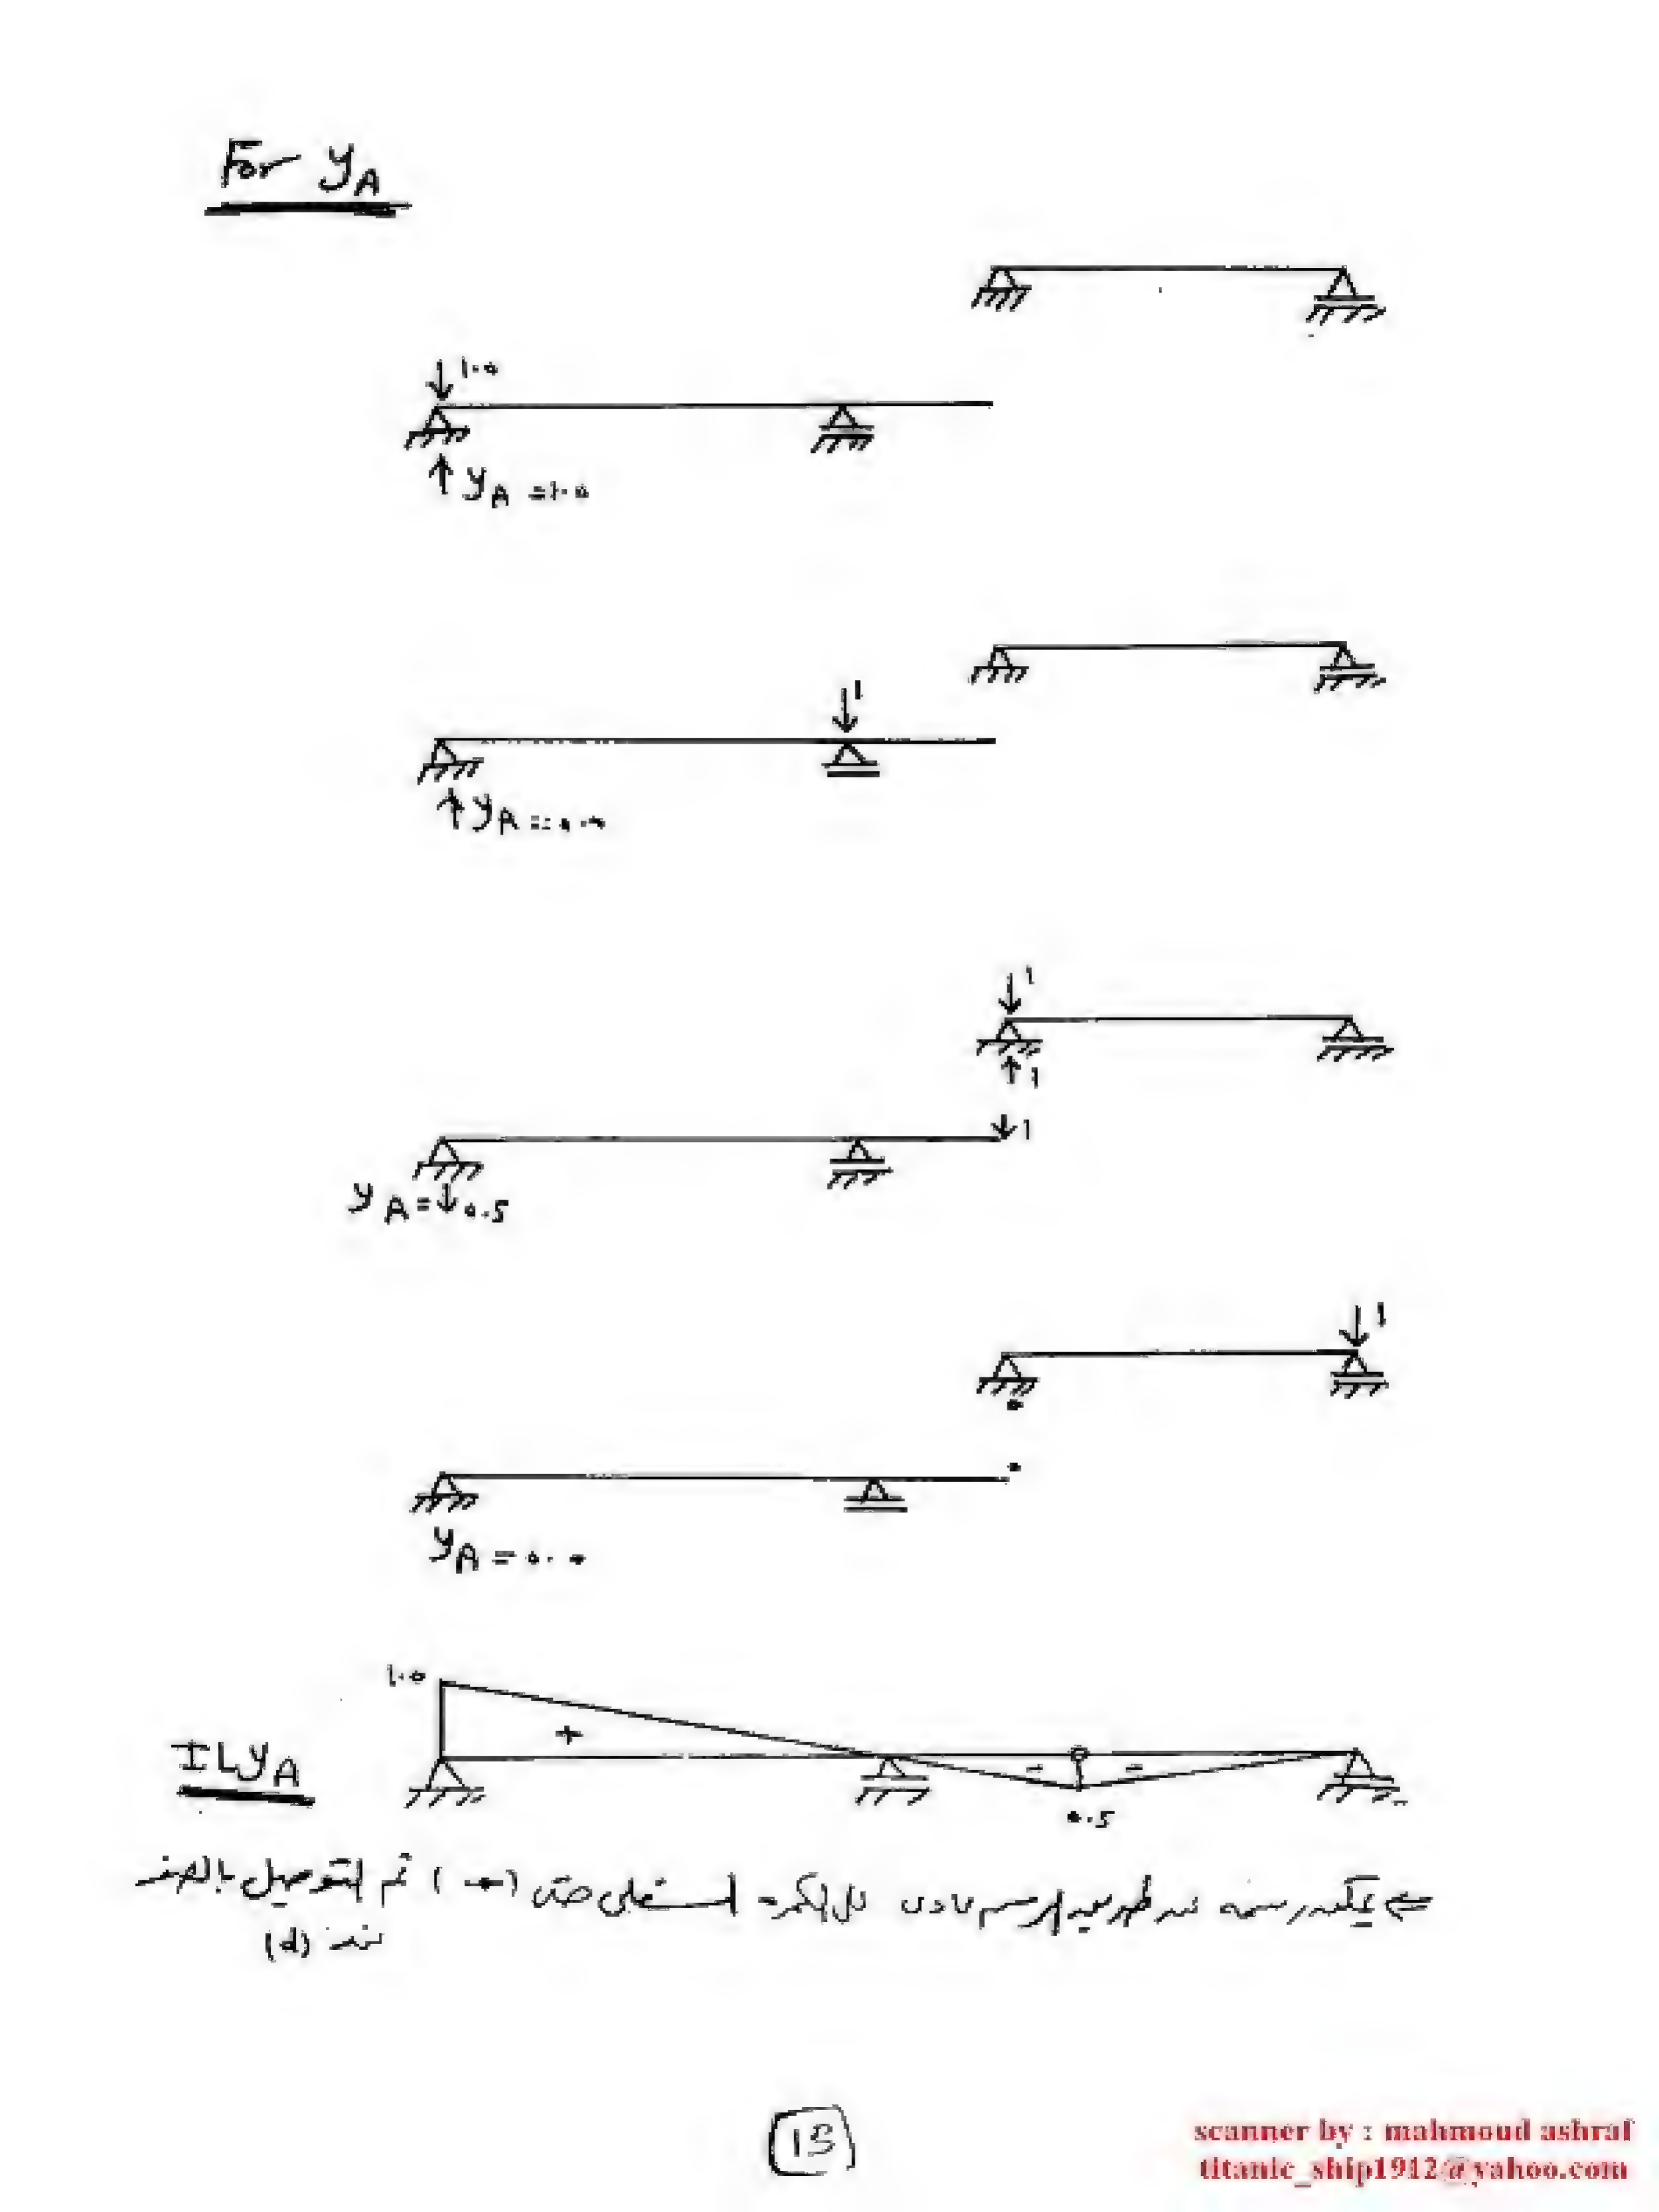 For yA
1.0
yA = 1.0
1
yA = 0.0
1
1
1
yA = ↓ 0.5
1
0
0
yA = 0.0
1.0
+
- -
IL yA
0.5
⇐ يمكن رسمه عن طريق الرسم عادى لل الكمرة السفلى حتى ( ) ثم التوصيل بالصفر
عند (d)
13
scanner by : mahmoud ashraf
titanic_ship1912@yahoo.com